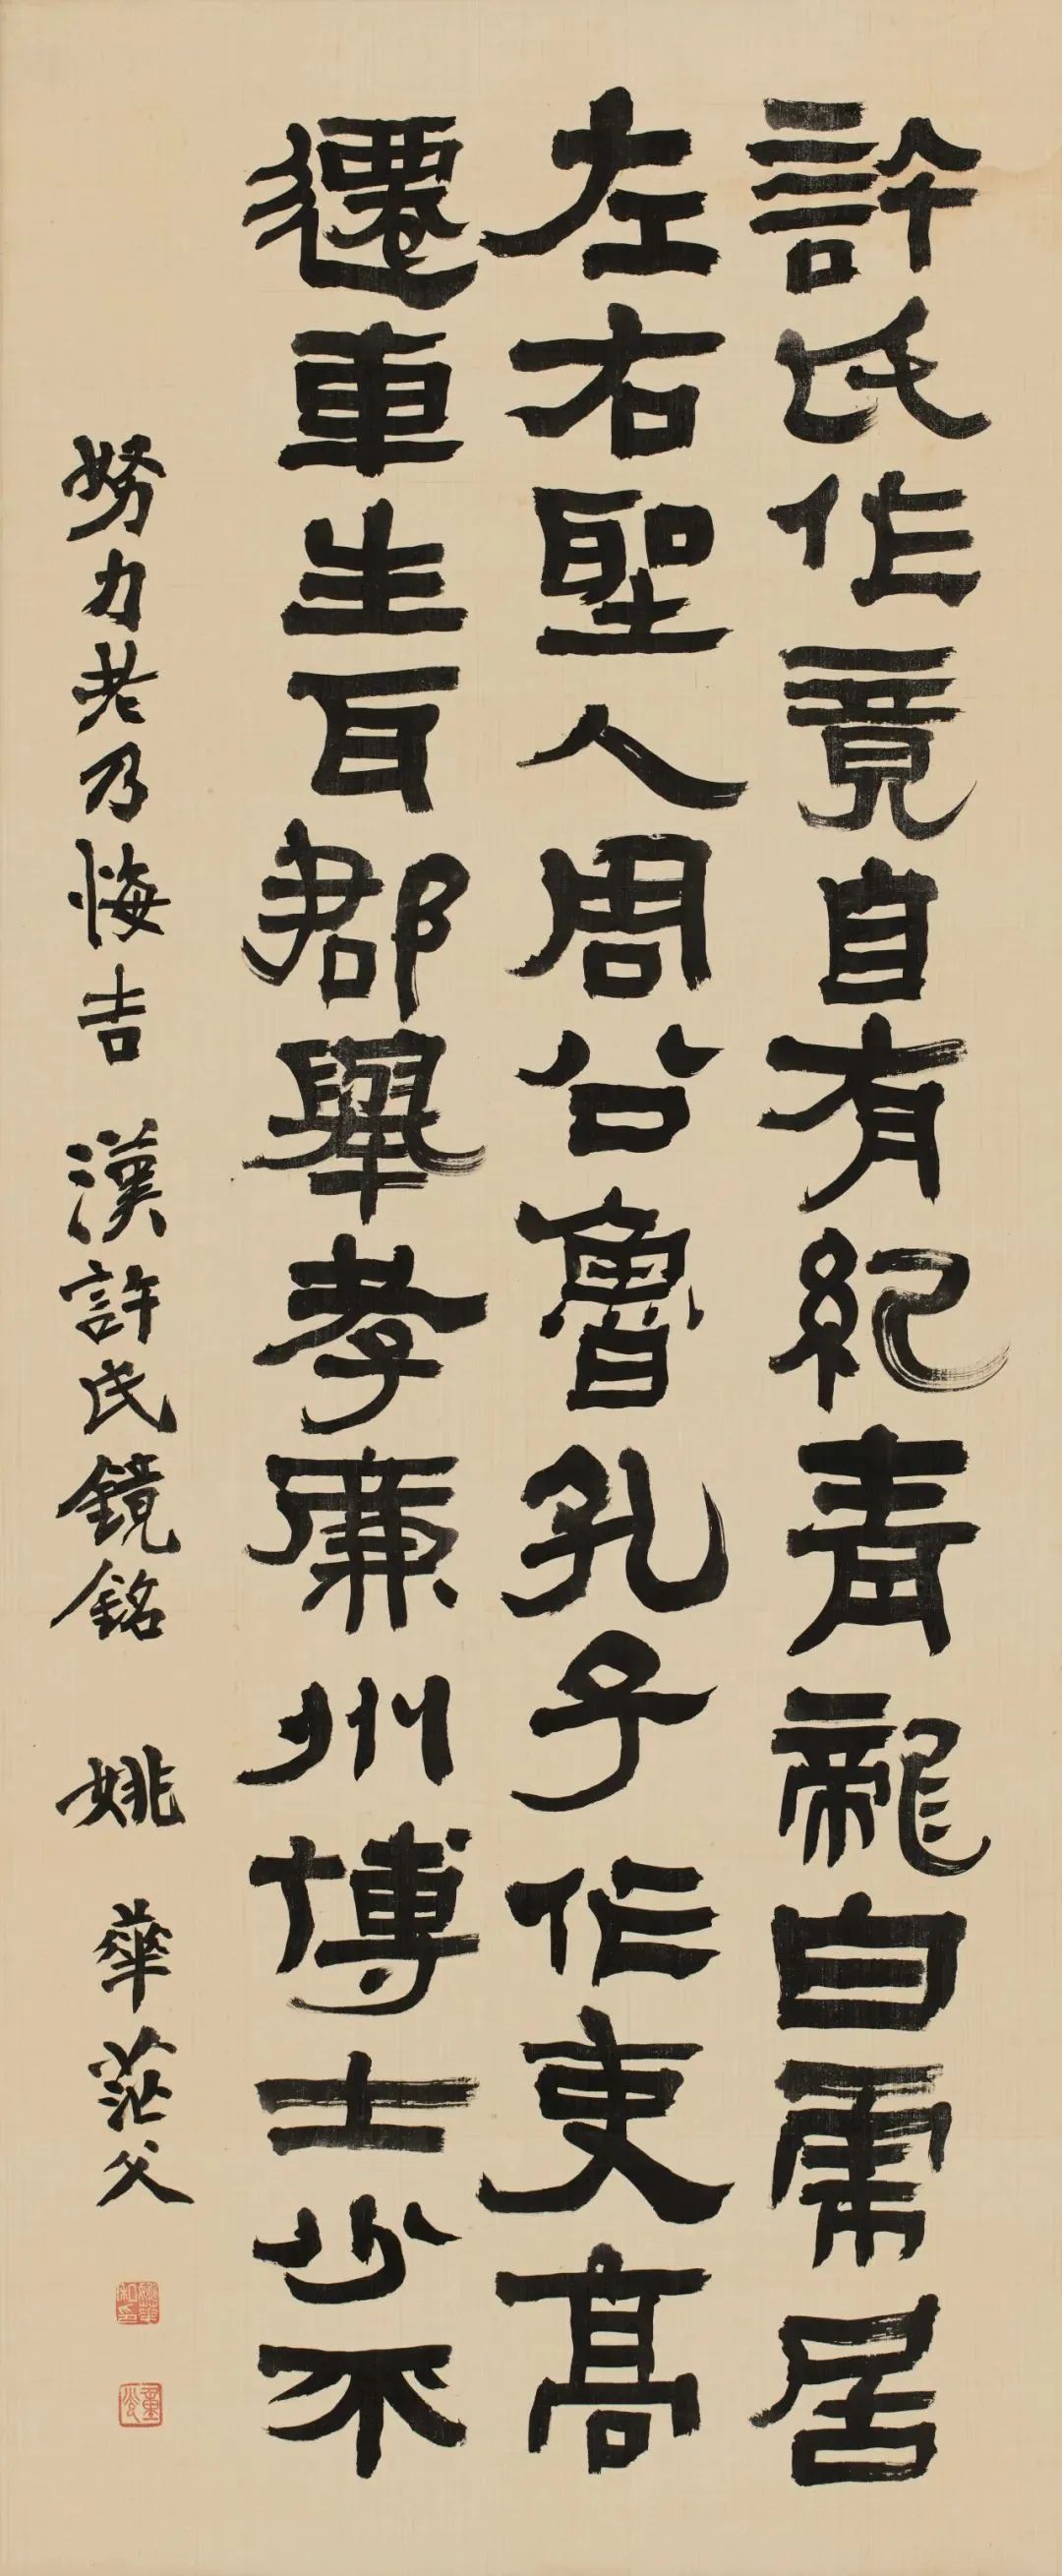 許氏作竟自有紀青龍白虎居
左右聖人周公魯孔子作吏高
遷車生耳郡舉孝廉州博士少不
努力老乃悔吉 漢許氏鏡銘 姚華茫父
姚華私印